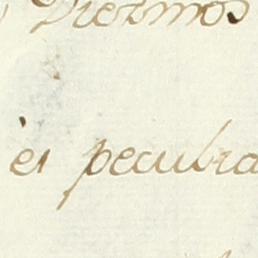 Diezmos
ei peculia